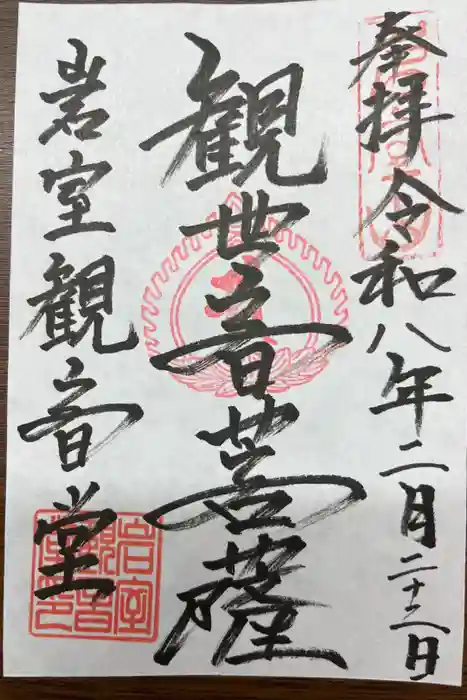 奉拝 令和八年二月二十三日
観世音菩薩
岩室観音堂
岩室
観音
堂印